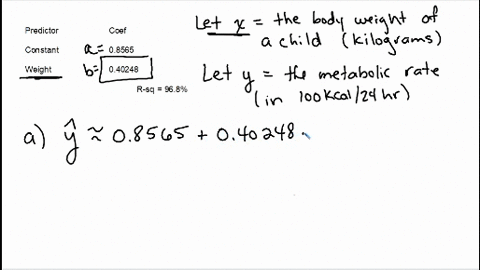 Predictor Coef
Constant a= 0.8565
Weight b= 0.40248
R-sq = 96.8%
Let x = the body weight of
a child (kilograms)
Let y = the metabolic rate
(in 100 Kcal/24 hr)
a) ŷ ≈ 0.8565 + 0.40248